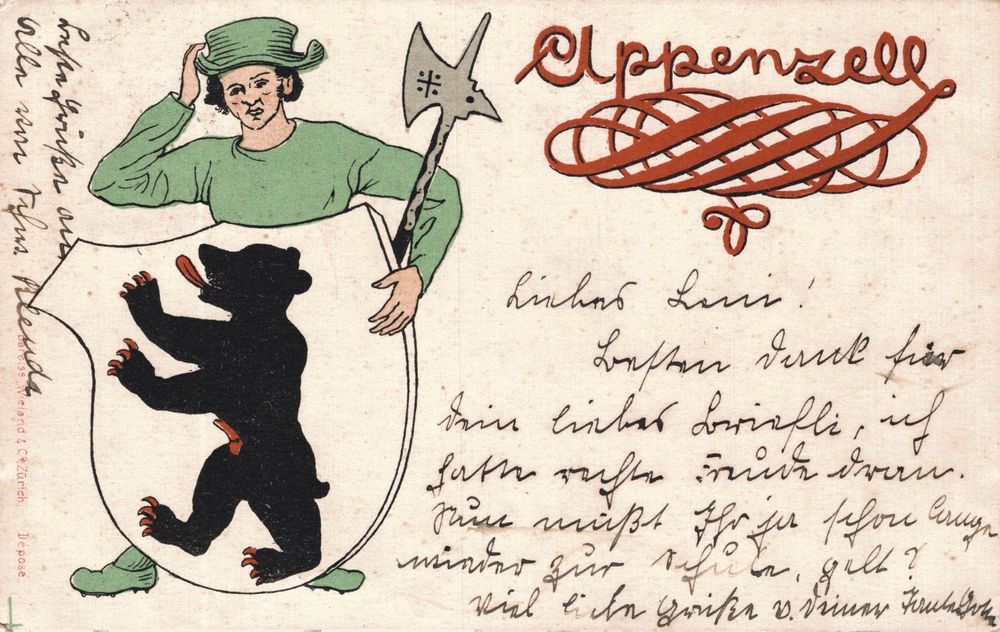 Appenzell
Liebes Leni!
Besten Dank für
dein liebes Briefli, ich
hatte rechte Freude dran.
Nun müßt Ihr ja schon lange
wieder zur Schule, gelt?
Viel liebe Grüße v. deiner Tante
Beste Grüße an
Alle von
Wieland & Co, Zürich. Déposé